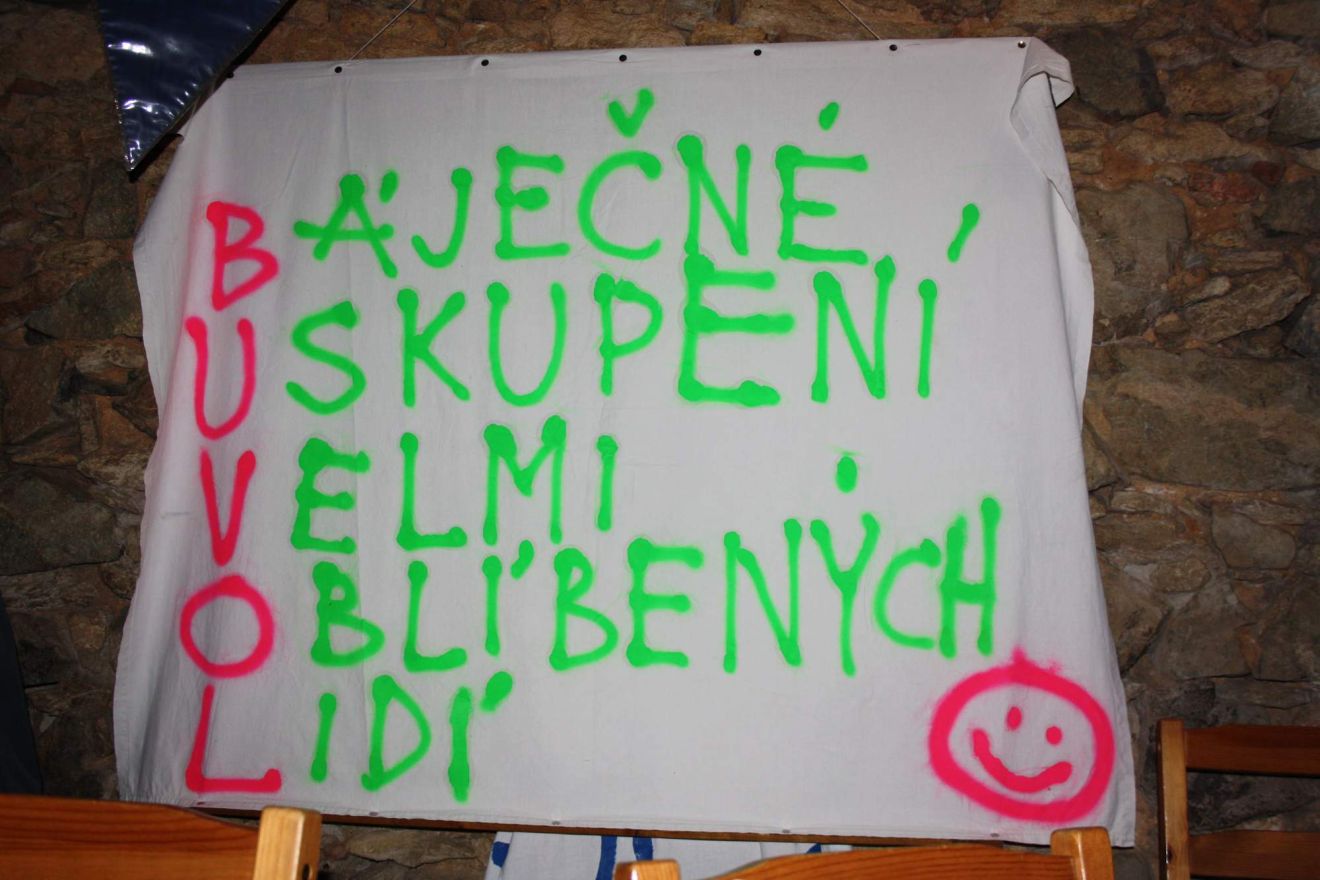 BÁJEČNÉ
USKUPENÍ
VELMI
OBLÍBENÝCH
LIDÍ